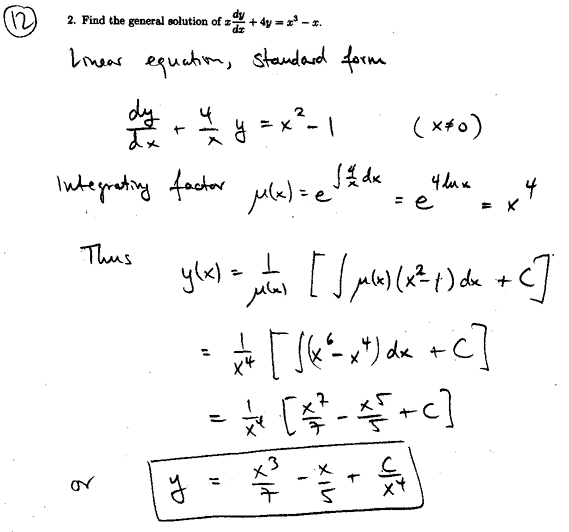 12
2. Find the general solution of x dy/dx + 4y = x³ − x.
Linear equation, standard form
dy/dx + 4/x y = x² − 1 (x≠0)
Integrating factor μ(x) = e^{∫ 4/x dx} = e^{4 ln x} = x⁴
Thus y(x) = 1/μ(x) [ ∫ μ(x)(x²−1) dx + C ]
= 1/x⁴ [ ∫(x⁶ − x⁴) dx + C ]
= 1/x⁴ [ x⁷/7 − x⁵/5 + C ]
or y = x³/7 − x/5 + C/x⁴